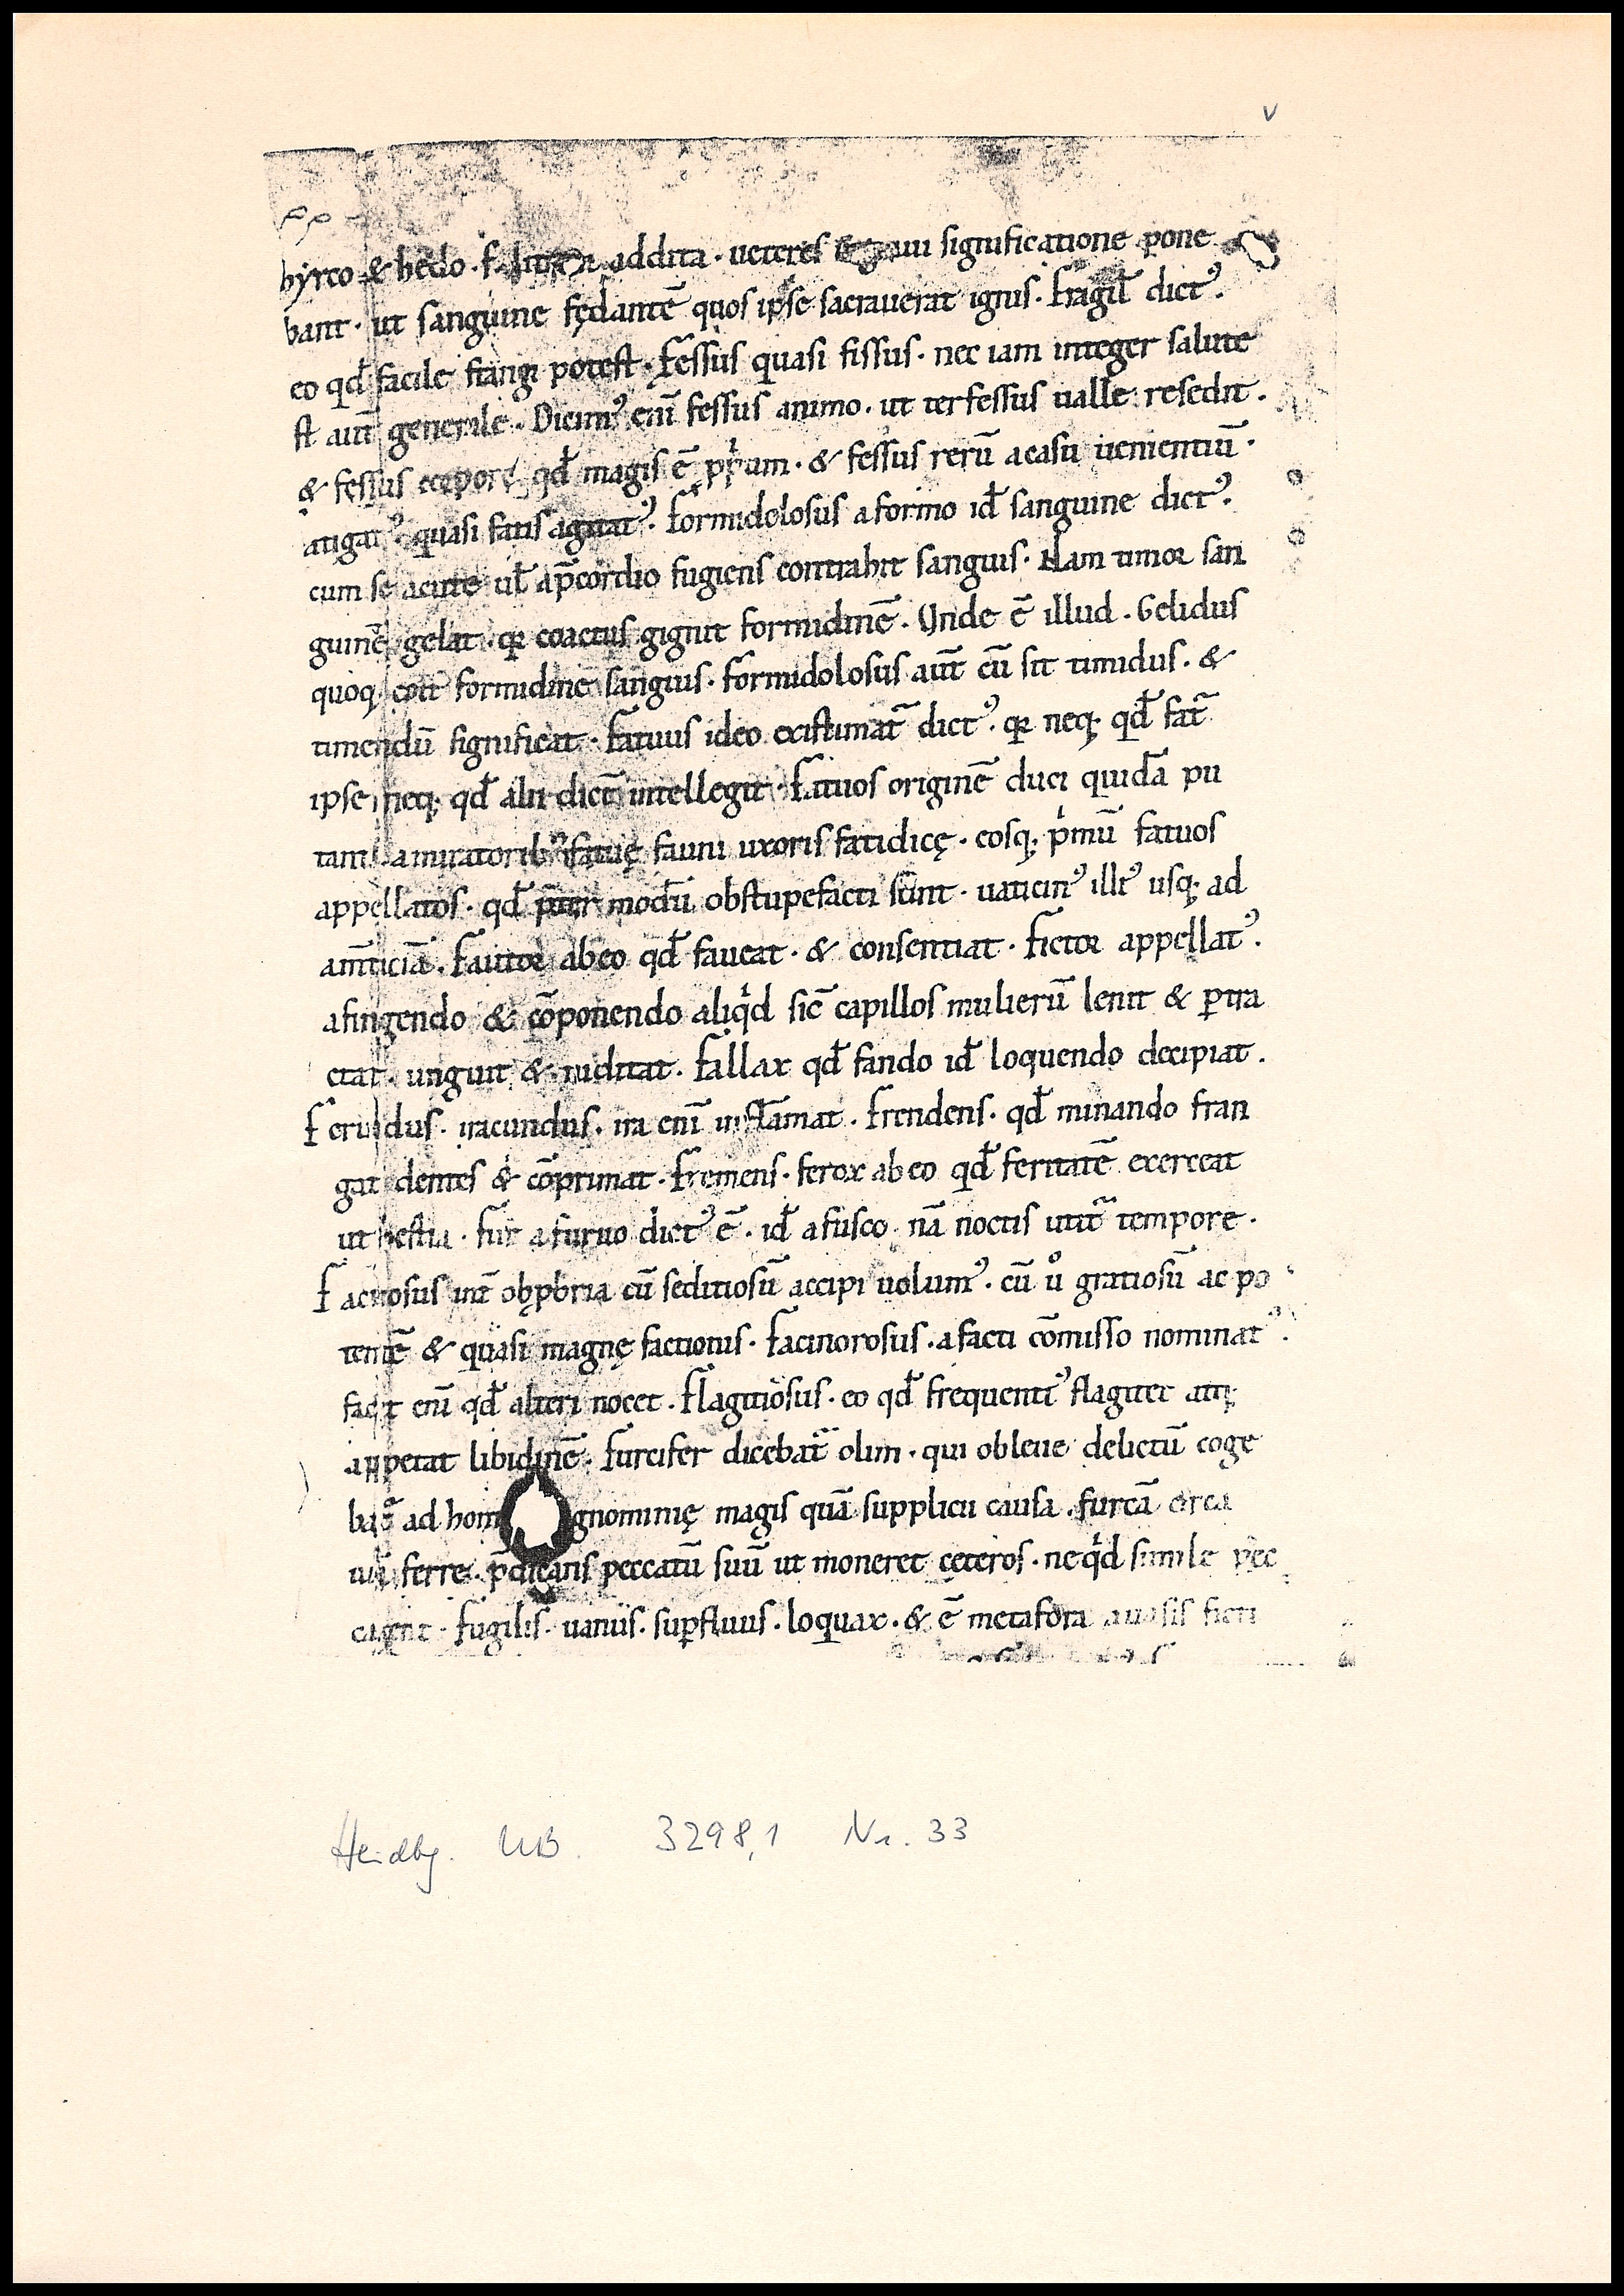 v
hyrco & hędo. f. litt̄a addita. ueteres & in graui significatione pone
bant. ut sanguine fędantē quos ipse sacrauerat ignis. Fragil̄ dictꝰ.
eo qđ facile frangi potest. Fessus quasi fissus. nec iam integer salute
st aut̄ generile. Dicimꝰ eni fessus animo. ut ter fessus ualle resedit.
& fessus corpore qđ magis ē ppͥum. & fessus rerū a casu uenientiū.
atigatꝰ quasi fatis agitatꝰ. Formidolosus a formo id̄ sanguine dictꝰ.
cum se a cute ul̄ a p̄cordio fugiens contrahit sanguis. Nam timor san
guinē gelat. qꝛ coactus gignit formidinē. Vnde ē illud. Gelidus
quoqꝫ coit formidine sanguis. Formidolosus aut̄ cū sit timidus. &
timendū significat. Fatuus ideo existimat̄ dictꝰ. qꝛ neqꝫ qđ fat̄
ipse neqꝫ qđ alii dicūt intellegit. Fatuos originē duci quidā pu
tant a miratoribꝰ fatuę fauni uxoris fatidicę. eosqꝫ pͥmū fatuos
appellatos. qđ p̄ter modū obstupefacti sunt. uaticinꝰ illiꝰ usqꝫ ad
am̄ticiā. Fautor ab eo qđ faueat. & consentiat. Fictor appellatꝰ.
a fingendo & cōponendo aliqͥd sic̄ capillos mulierū lenit & ꝑtra
ctat. unguit & niditat. Fallax qđ fando id̄ loquendo decipiat.
Feruidus. iracundus. ira eni inflāmat. Frendens. qđ minando fran
gat dentes & cōprimat. Fremens. ferox ab eo qđ feritatē exerceat
ut bestia. Fur a furuo dictꝰ ē. id̄ a fusco. nā noctis utit̄ tempore.
Factiosus int̄ obꝑbria cū seditiosū accipi uolumꝰ. cū u̇ͦ gratiosū ac po
tentē & quasi magnę factionis. Facinorosus. a facti cōmisso nominatꝰ.
facit eni qđ alteri nocet. Flagitiosus. eo qđ frequentiꝰ flagitet atqꝫ
appetat libidinē. Furcifer dicebat̄ olim. qui ob leue delictū coge
bat̄ ad hom gnominię magis quā supplicii causa. furcā circa
uiā ferre. p̄dicans peccatū suū ut moneret cęteros. ne qͥd simile pec
carent. Fugilis. uanus. suꝑfluus. loquax. & ē metafora a uasis ficti
Heidbg. UB. 3298,1 Nr. 33